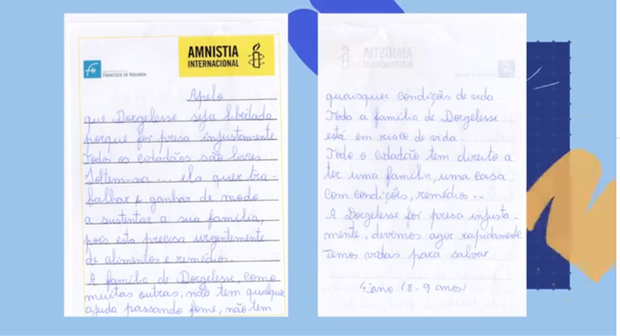 AMNISTIA
INTERNACIONAL
FRANCISCO DE HOLANDA
Apelo
que Dorgelesse seja libertada
porque foi presa injustamente
Todos os cidadãos são livres.
Soltem-na ... ela quer tra-
balhar e ganhar de modo
a sustentar a sua família,
pois esta precisa urgentemente
de alimentos e remédios.
A família de Dorgelesse, como
muitas outras, não tem qualquer
ajuda passando fome, não tem
quaisquer condições de vida
Toda a família de Dorgelesse
está em risco de vida
Todo o cidadão tem direito a
ter uma família, uma casa
com condições, remédios...
A Dorgelesse foi presa injusta-
mente, devemos agir rapidamente
Temos vidas para salvar
4º ano (8-9 anos)